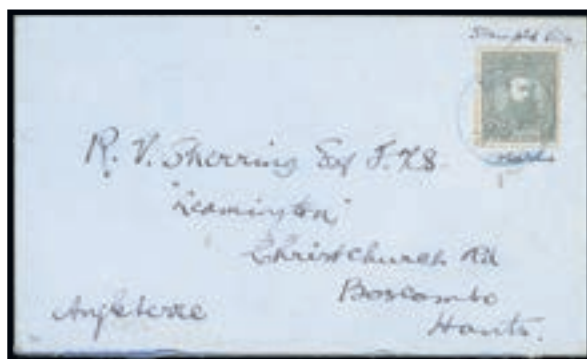 R. V. Sherring Esq F.L.S.
"Leamington"
Christchurch Rd
Boscombe
Hants.
Angleterre